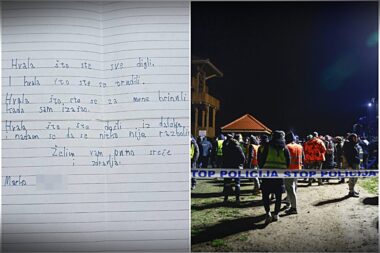 Hvala što ste svi digli.
I hvala što ste se trudili.
Hvala što ste se za mene brinuli
kada sam izašao.
Hvala što ste došli iz daleka,
i nadam se da se nitko nije razbolio
Želim vam puno sreće
i zdravlja.
Marko
STOP POLICIJA STOP POLICIJA